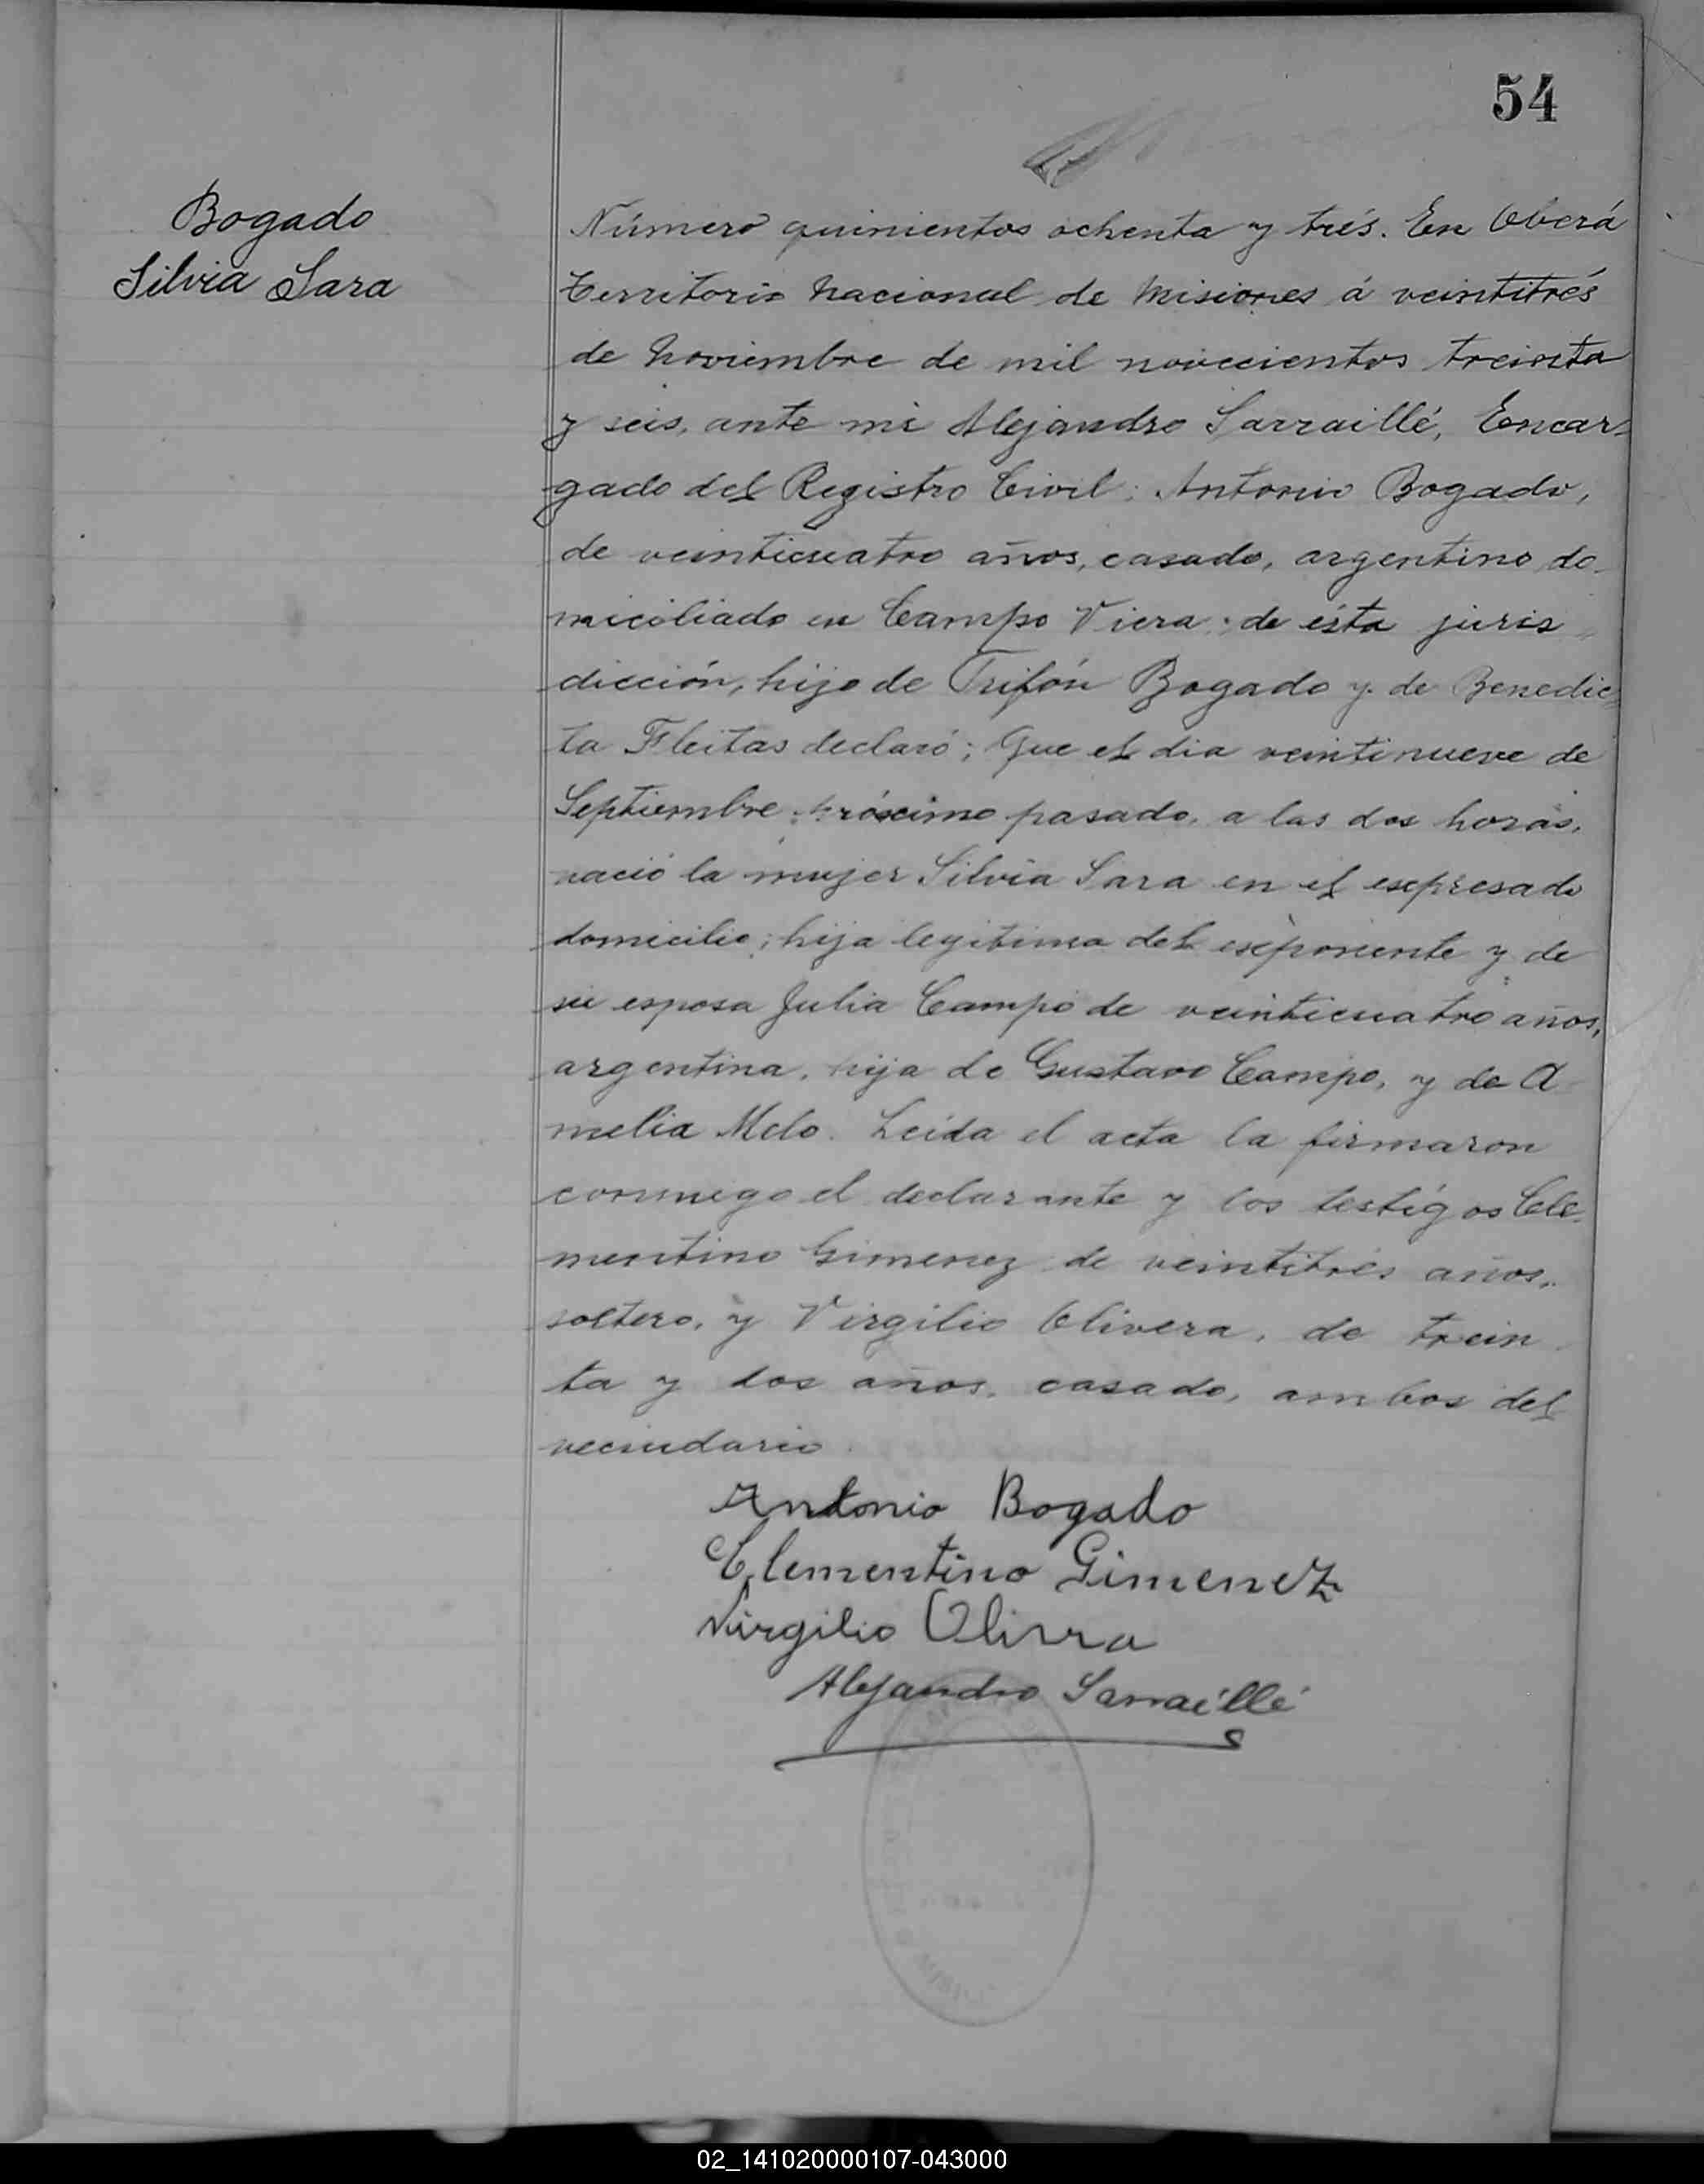 54
Bogado
Silvia Sara
Número quinientos ochenta y trés. En Oberá
Territorio Nacional de Misiones á veintitrés
de Noviembre de mil novecientos treinta
y seis, ante mi Alejandro Sarraillé, Encar-
gado del Registro Civil: Antonio Bogado,
de veinticuatro años, casado, argentino, do-
miciliado en Campo Viera; de ésta juris
dicción, hijo de Trifón Bogado y de Benedic-
ta Fleitas declaró; Que el dia veintinueve de
Septiembre próximo pasado, a las dos horas,
nació la mujer Silvia Sara en el expresado
domicilio; hija legitima del exponente y de
su esposa Julia Campo de veinticuatro años,
argentina, hija de Gustavo Campo, y de A
melia Melo. Leída el acta la firmaron
conmigo el declarante y los testigos Cle-
mentino Gimenez de veintitrés años,
soltero, y Virgilio Olivera, de trein
ta y dos años, casado, ambos del
vecindario.
Antonio Bogado
Clementino Gimenez
Virgilio Olivra
Alejandro Sarraillé
02_141020000107-043000